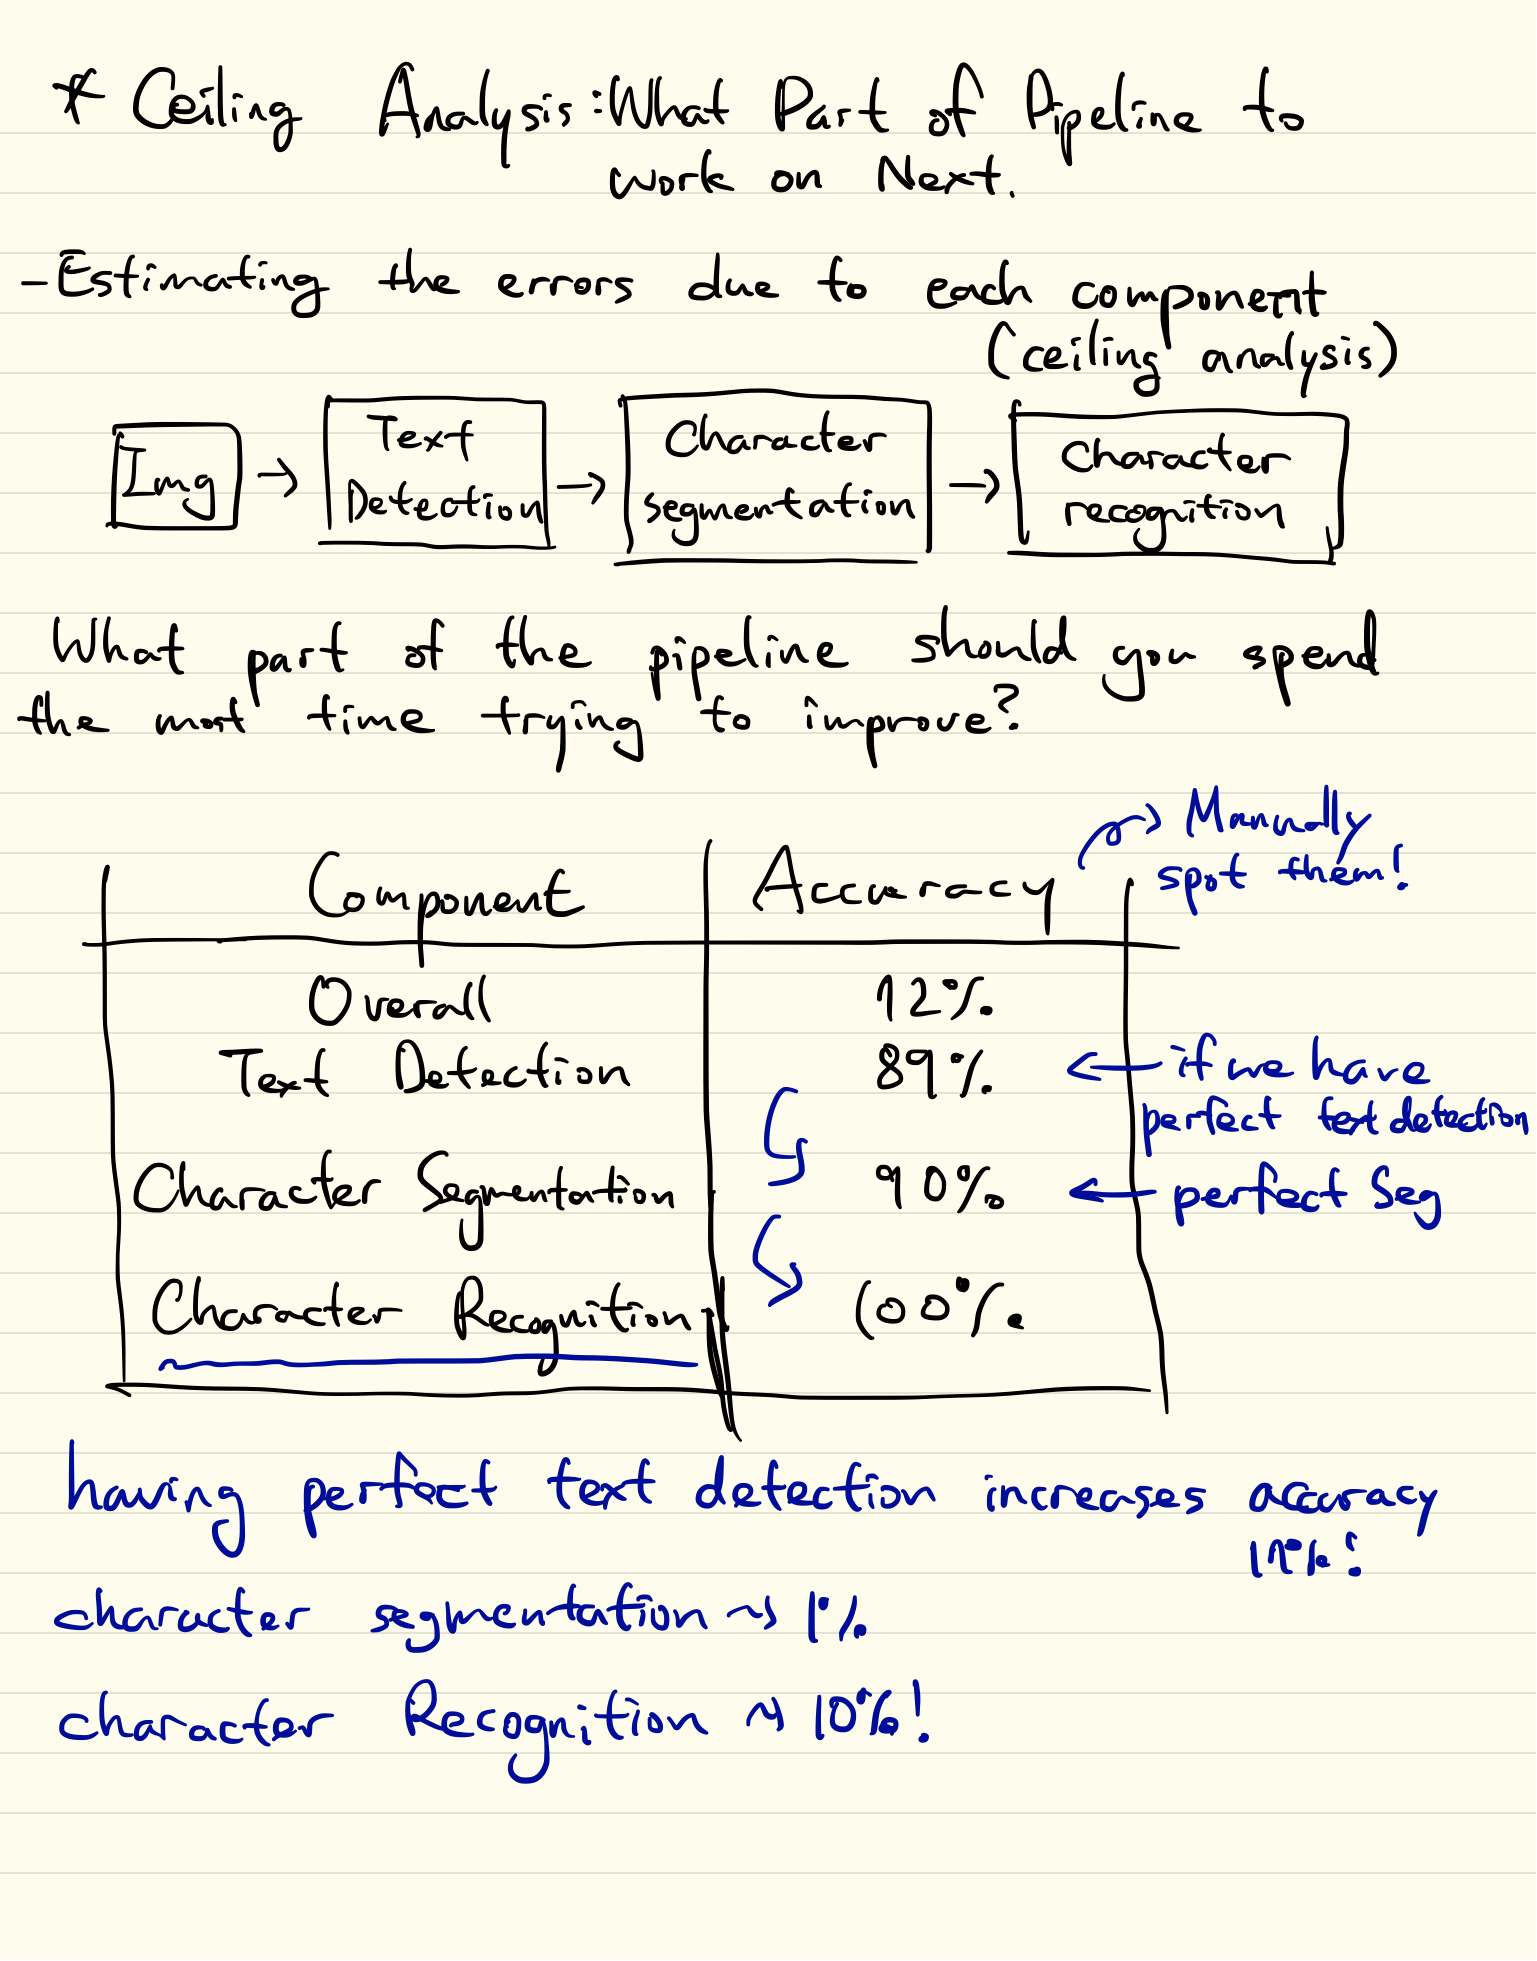 * Ceiling Analysis: What Part of Pipeline to
work on Next.
- Estimating the errors due to each component
(ceiling analysis)
Img → Text Detection → Character segmentation → Character recognition
What part of the pipeline should you spend
the most time trying to improve?
→ Manually
spot them!
Component Accuracy
Overall 72%
Text Detection 89% ← if we have
perfect text detection
Character Segmentation 90% ← perfect Seg
Character Recognition 100%
having perfect text detection increases accuracy
17%!
character segmentation ~> 1%
character Recognition ~> 10%!